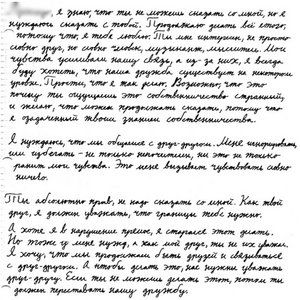 я знаю, что ты не можешь сказать со мной, но я
нуждаюсь сказать с тобой. Продолжаю делать всё этого,
потому что, я тебе люблю. Ты мне интересен, не просто
словно друг, но словно человек, музыкант, мыслитель. Мои
чувства усиливают нашу связь, а из-за них, я всегда
буду хотеть, что наша дружба существует на некотором
уровне. Прости, что я так делаю. Возможно, что это
почему ты ощущаешь это собственничество странный,
и жалею, что может продолжать сказать, потому что
я озадаченный твоим знанием собственничества.
Я нуждаюсь, что мы общаемся с друг-другом. Меня игнорировать,
или избегать - не только ничтожным, но это не только
ранит мои чувства. Это меня вызывает чувствовать словно
ничего.
Ты абсолютно прав, не надо сказать со мной. Как твой
друг, я должен уважать, что границы тебе нужно.
А хотя я в нарушении прежде, я стараюсь этот делать.
Но тоже у меня нужд, а как мой друг, ты не их уважал.
Я хочу, что мы продолжаем быть друзей и связываться
с друг-другом. А чтобы делать это, нас нужны уважать
друг-другу. Если ты не можешь делать этот, потом ты
должен переставать нашу дружбу.